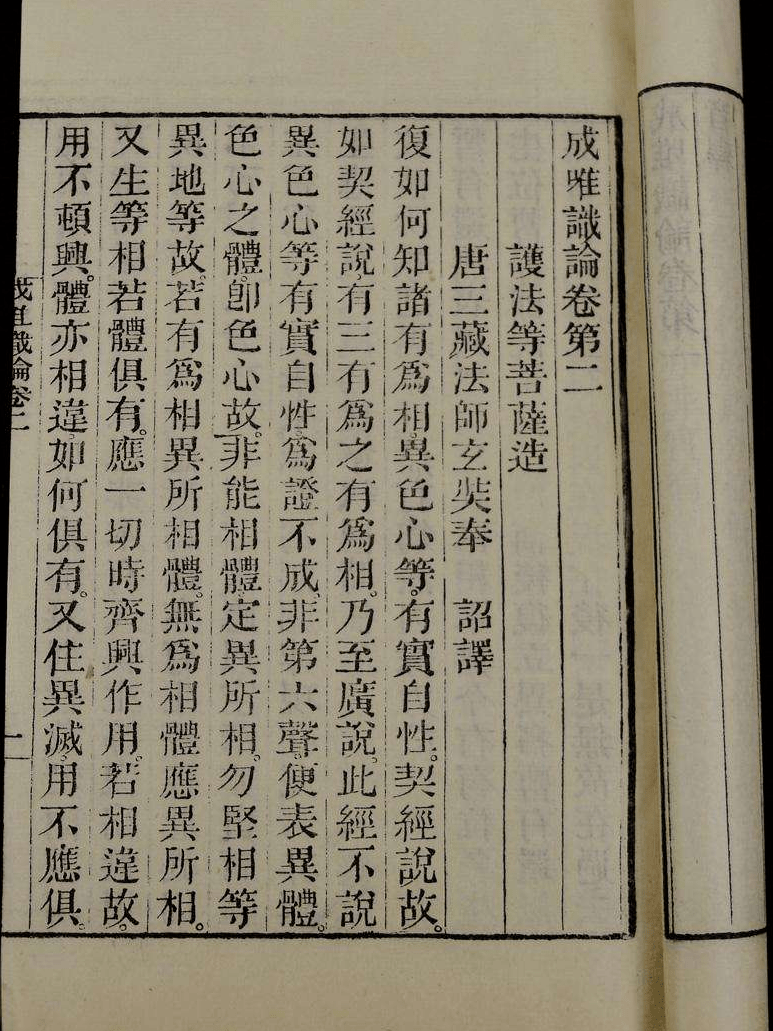 成唯識論卷第二
護法等菩薩造
唐三藏法師玄奘奉　詔譯
復如何知諸有爲相。異色心等。有實自性。契經說故。
如契經說。有三有爲之有爲相。乃至廣說。此經不說
異色心等有實自性。爲證不成。非第六聲。便表異體。
色心之體。卽色心故。非能相體。定異所相。勿堅相等
異地等故。若有爲相異所相體。無爲相體應異所相。
又生等相若體俱有。應一切時齊興作用。若相違故。
用不頓興。體亦相違。如何俱有。又住異滅。用不應俱。
成唯識論卷二
一